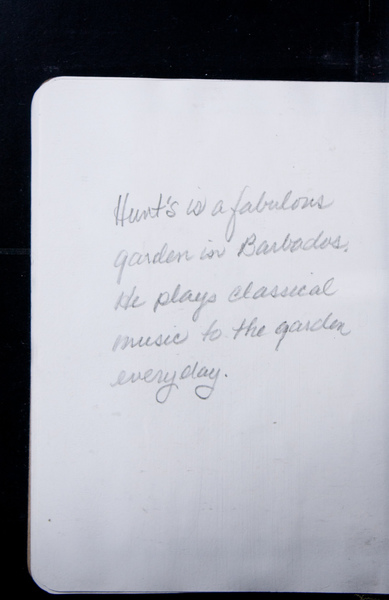 Hunt's is a fabulous
garden in Barbados.
He plays classical
music to the garden
everyday.